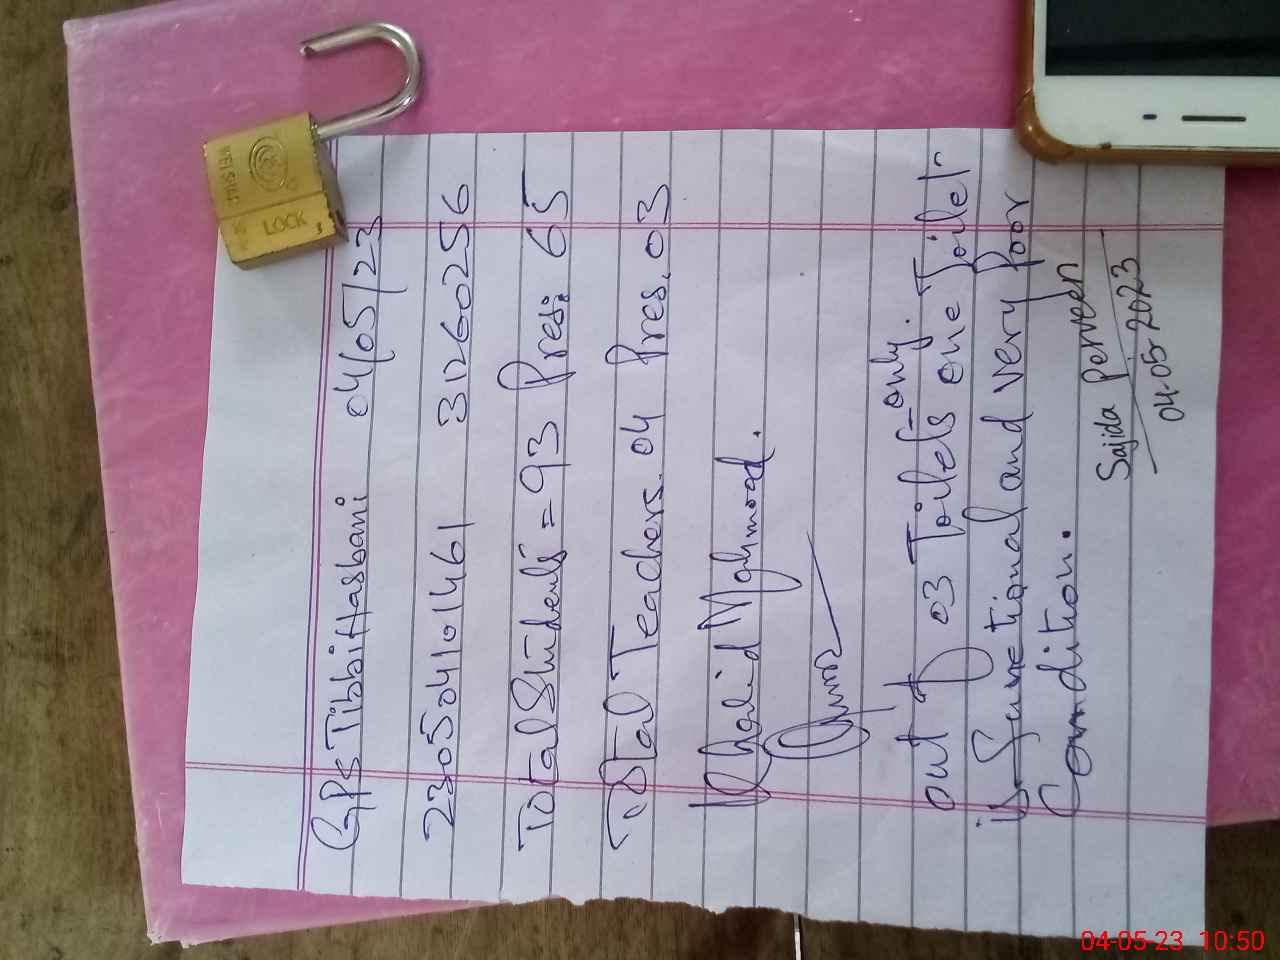 GPS Tibbi Hasbani 04/05/23
230504101461 31260256
Total Students = 93 Pres: 65
Total Teachers. 04 Pres. 03
Khalid Mahmood.
only.
out of 03 Toilets one Toilet
is Functional and very Poor
Condition.
Sajida Perveen
04-05-2023
WEISHU
LOCK
04-05-23 10:50